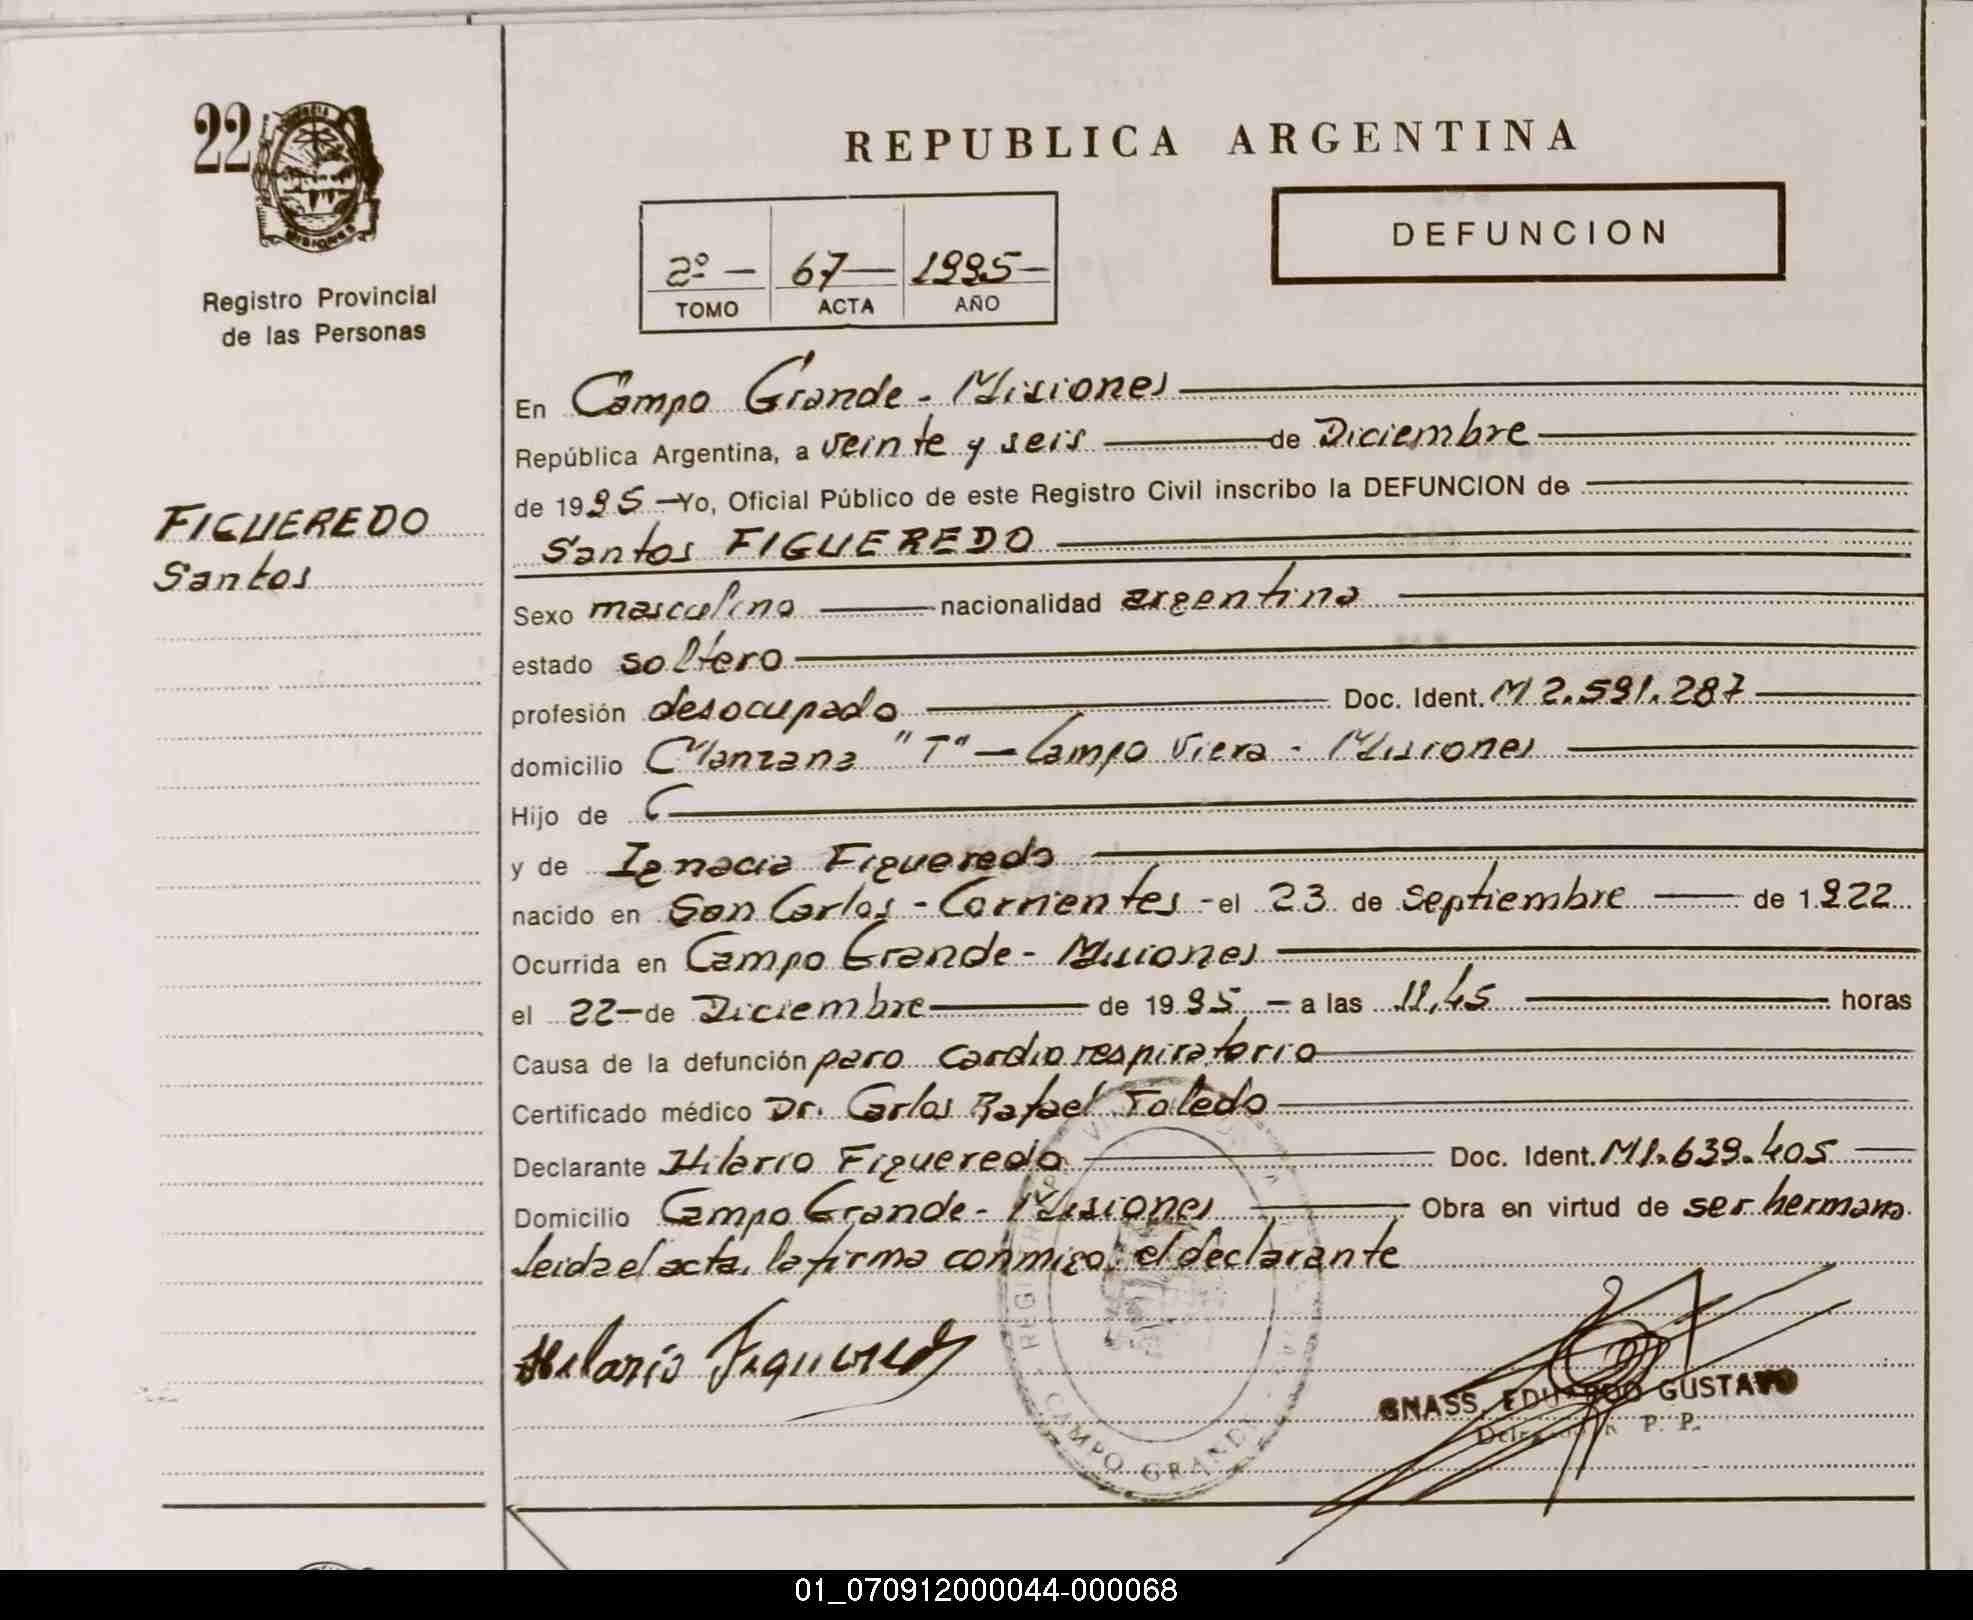 22
Registro Provincial
de las Personas
FIGUEREDO
Santos
REPUBLICA ARGENTINA
DEFUNCION
2º - 67 1995-
TOMO ACTA AÑO
En Campo Grande - Misiones
República Argentina, a veinte y seis de Diciembre
de 1995 - Yo, Oficial Público de este Registro Civil inscribo la DEFUNCION de
Santos FIGUEREDO
Sexo masculino nacionalidad argentina
estado soltero
profesión desocupado Doc. Ident. M 2.591.287
domicilio Manzana "T" - Campo Viera - Misiones
Hijo de
y de Ignacia Figueredo
nacido en San Carlos - Corrientes - el 23 de Septiembre de 1922
Ocurrida en Campo Grande - Misiones
el 22 - de Diciembre de 1995 - a las 11,45 horas
Causa de la defunción paro cardiorespiratorio
Certificado médico Dr. Carlos Rafael Toledo
Declarante Hilario Figueredo Doc. Ident. M 1.639.405
Domicilio Campo Grande - Misiones Obra en virtud de ser hermano.
Leida el acta, la firma conmigo, el declarante
Hilario Figueredo
GNASS, EDUARDO GUSTAVO
P. P.
CAMPO GRANDE
01_070912000044-000068